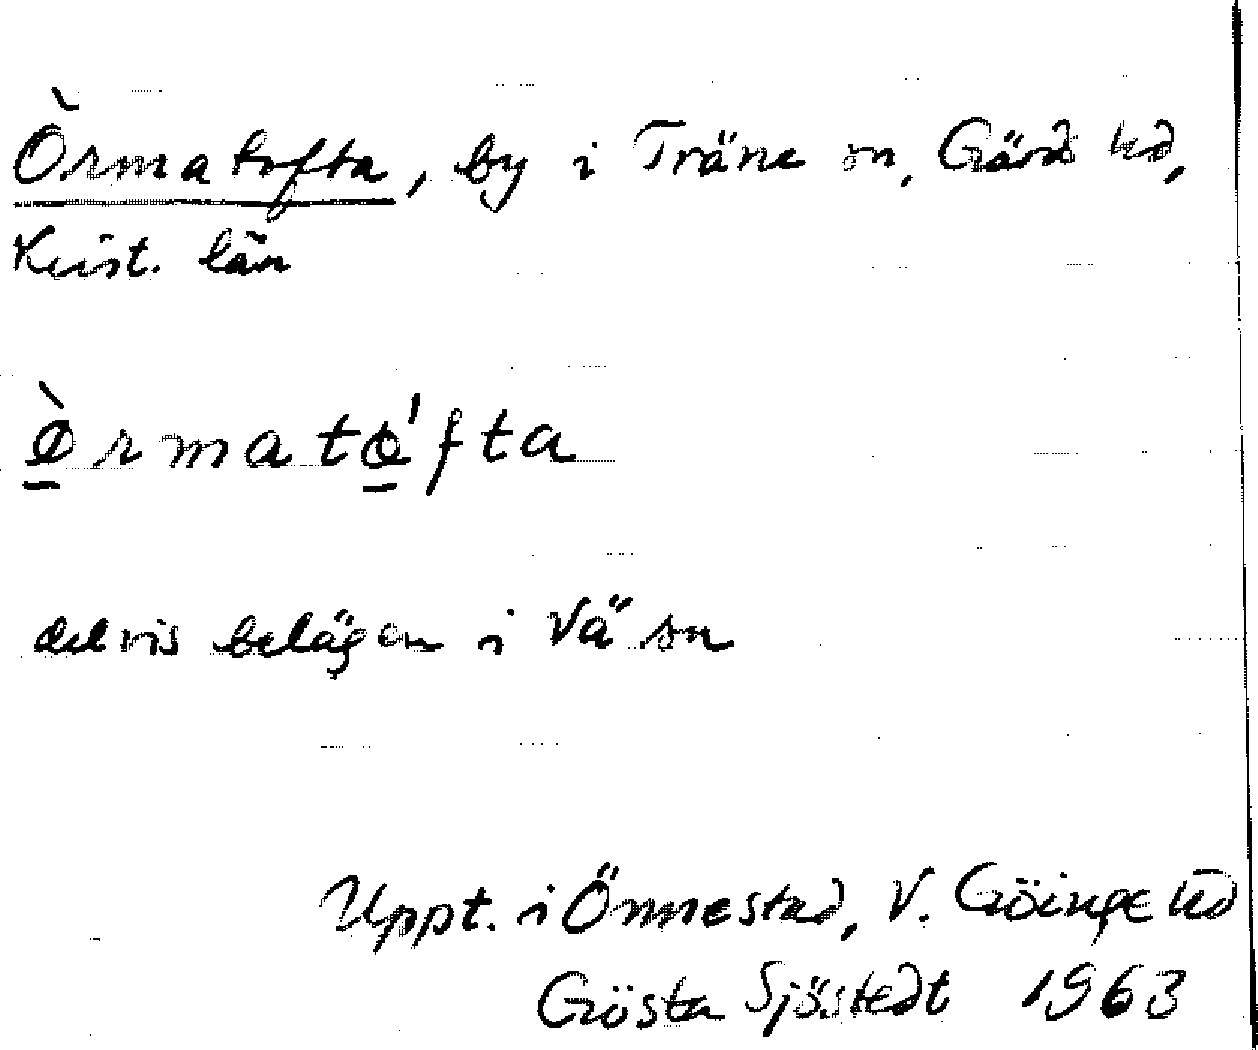 Òrmatofta, by i Träne sn, Gärds hd,
Krist. län
ø̠̀rmatǿ̠fta
delvis belägen i Vä sn
Uppt. i Önnestad, V. Göinge hd
Gösta Sjöstedt 1963